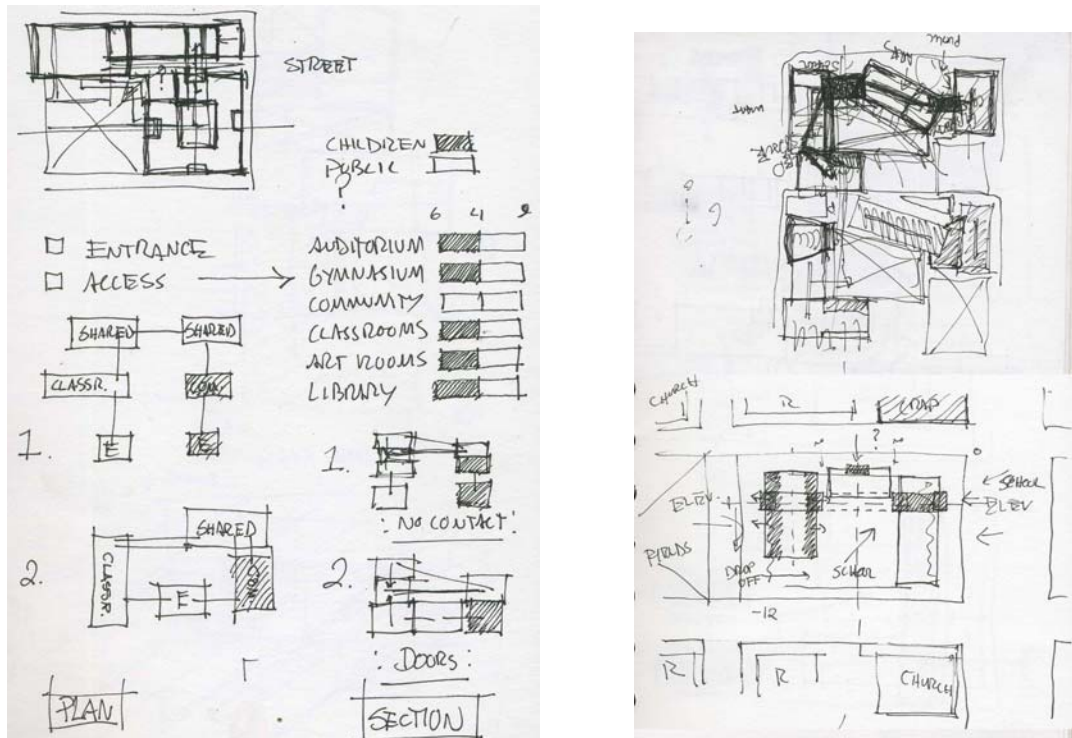 STREET
CHILDREN
PUBLIC
?
6 4 9
ENTRANCE
ACCESS
AUDITORIUM
GYMNASIUM
COMMUNITY
CLASSROOMS
ART ROOMS
LIBRARY
SHARED SHARED
CLASSR. COM.
1. E E
1.
: NO CONTACT :
2. SHARED
CLASSR. E COM.
2.
: DOORS :
PLAN
SECTION
PUBLIC
CHURCH R CRAP
?
ELEV. SCHOOL
ELEV
FIELDS
DROP
OFF
SCHOOL
-12
R R CHURCH